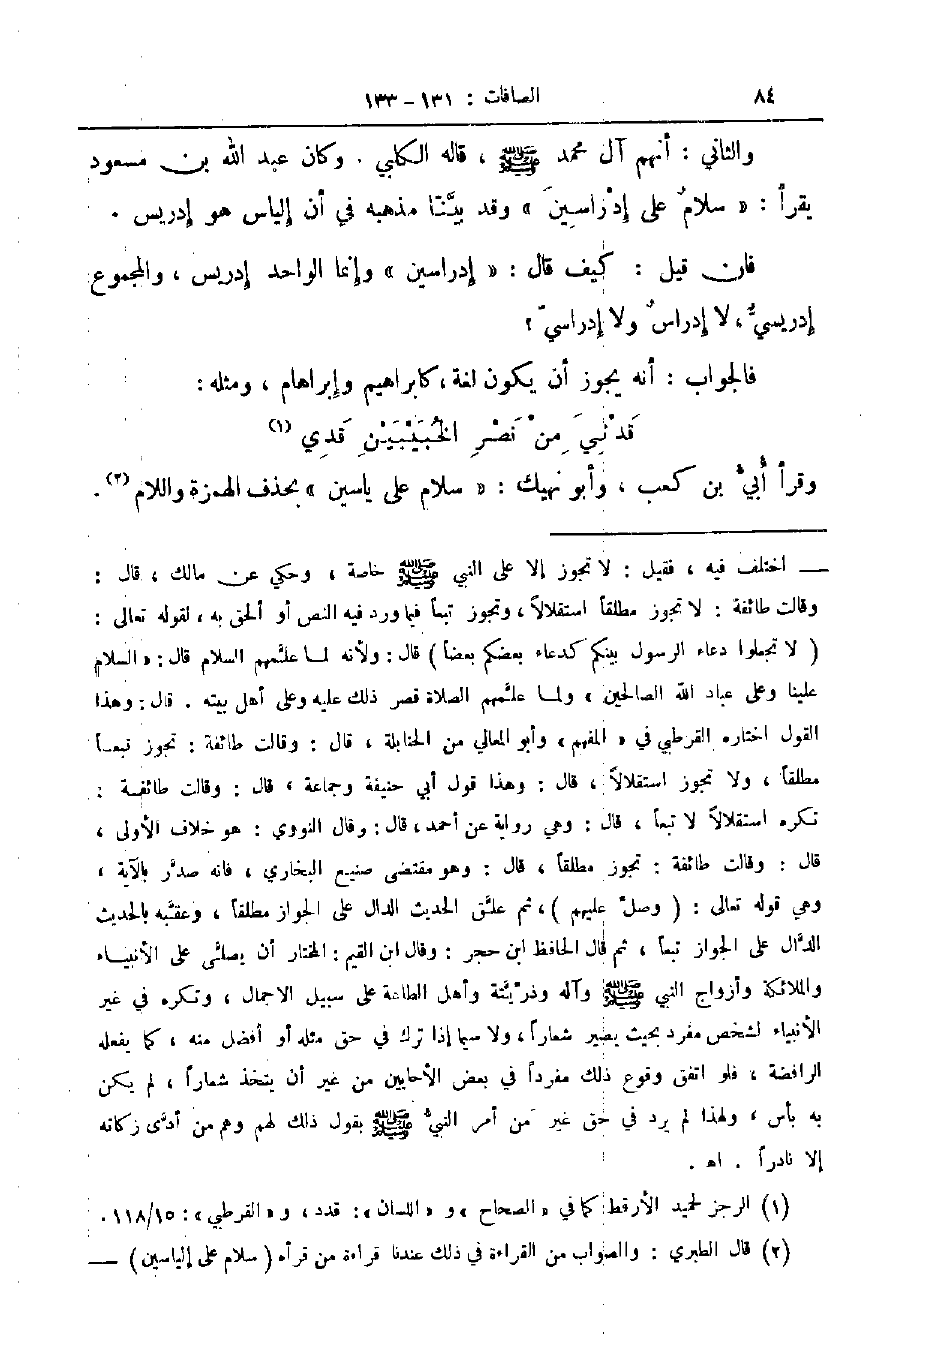 ٨٤
الصافات : ١٣١ - ١٣٣
والثاني : أنهم آل محمد ﷺ ، قاله الكلبي . وكان عبد الله بن مسعود
يقرأ : « سلامٌ على إدْراسينَ » وقد بيَّنّا مذهبه في أن إلياس هو إدريس .
فان قيل : كيف قال : « إدراسين » وإنما الواحد إدريس ، والمجموع
إدريسيٌّ ، لا إدراسٌ ولا إدراسيّ ؟
فالجواب : أنه يجوز أن يكون لغة ، كابراهيم وإبراهام ، ومثله :
قَدْنِيَ مِنْ نَصْرِ الخُبَيْبَيْنِ قَدِي (١)
وقرأ أُبيُّ بن كعب ، وأبو نهيك : « سلام على ياسين » بحذف الهمزة واللام (٢) .
— اختلف فيه ، فقيل : لا تجوز إلا على النبي ﷺ خاصة ، وحكي عن مالك ، قال :
وقالت طائفة : لا تجوز مطلقاً استقلالاً ، وتجوز تبعاً فيما ورد فيه النص أو ألحق به ، لقوله تعالى :
( لا تجعلوا دعاء الرسول بينكم كدعاء بعضكم بعضاً ) قال : ولأنه لما علَّمهم السلام قال : « السلام
علينا وعلى عباد الله الصالحين » ولما علَّمهم الصلاة قصر ذلك عليه وعلى أهل بيته . قال : وهذا
القول اختاره القرطبي في « المفهم » وأبو المعالي من الحنابلة ، قال : وقالت طائفة : تجوز تبعاً
مطلقاً ، ولا تجوز استقلالاً ، قال : وهذا قول أبي حنيفة وجماعة ، قال : وقالت طائفة :
تكره استقلالاً لا تبعاً ، قال : وهي رواية عن أحمد ، قال : وقال النووي : هو خلاف الأولى ،
قال : وقالت طائفة : تجوز مطلقاً ، قال : وهو مقتضى صنيع البخاري ، فانه صدَّر بالآية ،
وهي قوله تعالى : ( وصلِّ عليهم ) ، ثم علَّق الحديث الدال على الجواز مطلقاً ، وعقَّبه بالحديث
الدَّال على الجواز تبعاً ، ثم قال الحافظ ابن حجر : وقال ابن القيم : المختار أن يصلَّى على الأنبياء
والملائكة وأزواج النبي ﷺ وآله وذريَّتة وأهل الطاعة على سبيل الاجمال ، وتكره في غير
الأنبياء لشخص مفرد بحيث يصير شعاراً ، ولا سيما إذا ترك في حق مثله أو أفضل منه ، كما يفعله
الرافضة ، فلو اتفق وقوع ذلك مفرداً في بعض الأحايين من غير أن يتخذ شعاراً ، لم يكن
به بأس ، ولهذا لم يرد في حق غير مَن أمر النبيُّ ﷺ بقول ذلك لهم وهم من أدَّى زكاته
إلا نادراً . اهـ .
(١) الرجز لحميد الأرقط كما في « الصحاح » و « اللسان » : قدد ، و « القرطبي » : ١١٨/١٥ .
(٢) قال الطبري : والصواب من القراءة في ذلك عندنا قراءة من قرأه ( سلام على إلياسين ) —